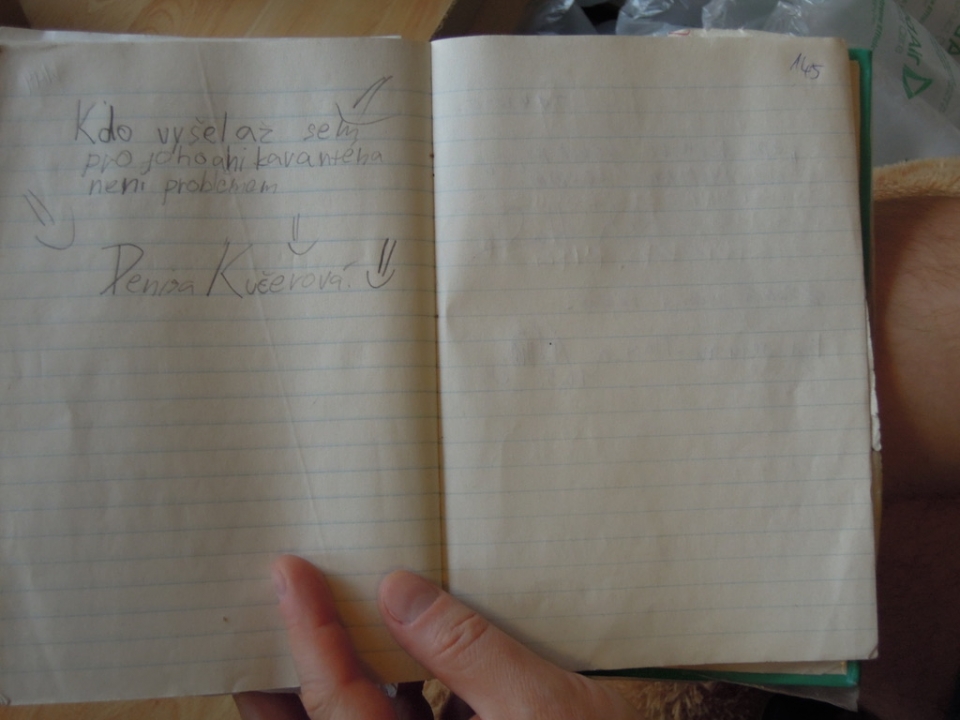 Kdo vyšel až sem
pro johoani karanténa
není problémem
Denisa Kučerová.
145